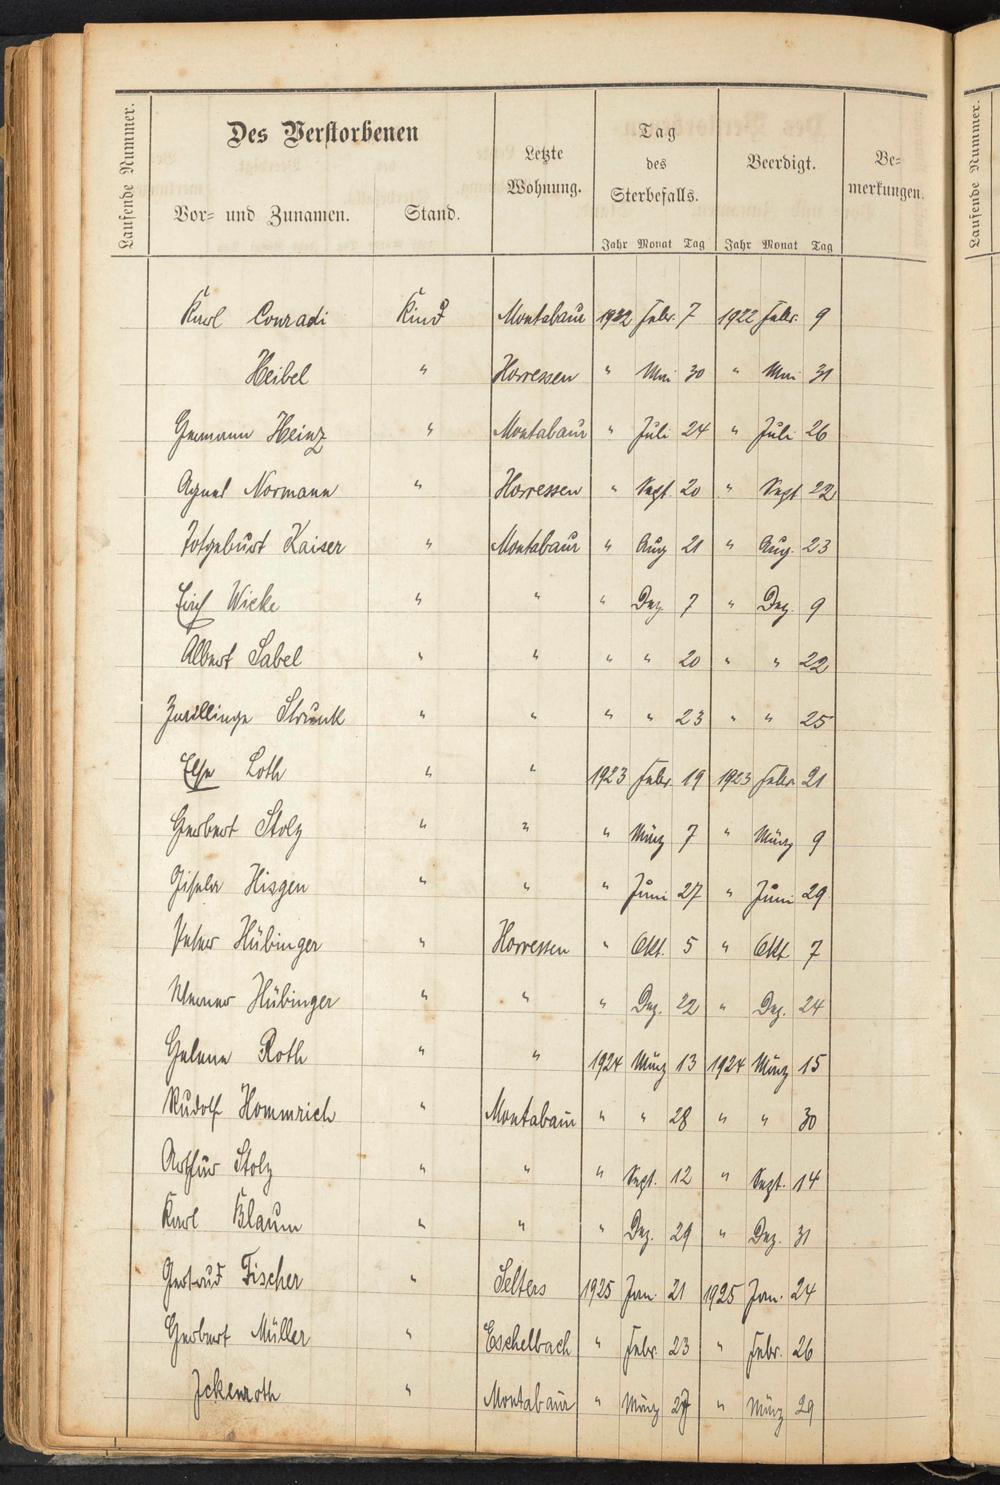 Laufende Nummer.
Des Verstorbenen
Vor- und Zunamen.
Stand.
Letzte
Wohnung.
Tag
des
Sterbefalls.
Jahr Monat Tag
Beerdigt.
Jahr Monat Tag
Be-
merkungen.
Karl Conradi Kind Montabaur 1922 Febr. 7 1922 Febr. 9
Heibel " Horressen " Mai 30 " Mai 31
Hermann Heinz " Montabaur " Juli 24 " Juli 26
Agnes Normann " Horressen " Sept. 20 " Sept 22
Totgeburt Kaiser " Montabaur " Aug 21 " Aug. 23
Erich Wicke " " " Dez. 7 " Dez. 9
Albert Sabel " " " " 20 " " 22
Zwillinge Strunk " " " " 23 " " 25
Else Loth " " 1923 Febr. 19 1923 Febr. 21
Herbert Stolz " " " März 7 " März 9
Gisela Hisgen " " " Juni 27 " Juni 29
Peter Hübinger " Horressen " Okt. 5 " Okt 7
Werner Hübinger " " " Dez. 22 " Dez. 24
Helene Roth " " 1924 März 13 1924 März 15
Rudolf Hommrich " Montabaur " " 28 " " 30
Arthur Stolz " " " Sept. 12 " Sept. 14
Karl Blaum " " " Dez. 29 " Dez. 31
Gertrud Fischer " Selters 1925 Jan. 21 1925 Jan. 24
Herbert Müller " Eschelbach " Febr. 23 " Febr. 26
Ickenroth " Montabaur " März 27 " März 29
Laufende Nummer.